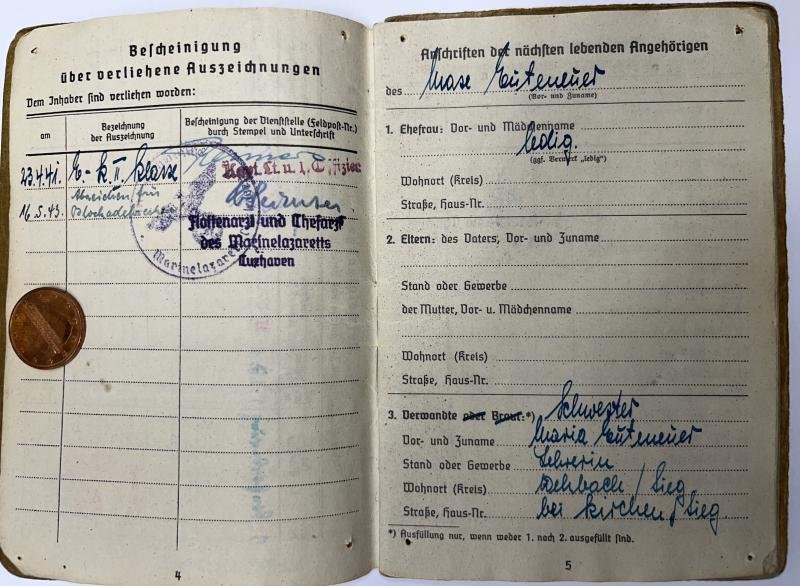 Bescheinigung
über verliehene Auszeichnungen
Dem Inhaber sind verliehen worden:
am
Bezeichnung
der Auszeichnung
Bescheinigung der Dienststelle (Feldpost-Nr.)
durch Stempel und Unterschrift
23.4.41. E.-K. II. Klasse
Abzeichen für
16.5.43. Blockadebrecher
Flottenarzt und Chefarzt
des Marinelazaretts
Cuxhaven
Marinelazarett
4
Anschriften der nächsten lebenden Angehörigen
des Euteneuer
(Vor- und Zuname)
1. Ehefrau: Vor- und Mädchenname
ledig.
(ggf. Vermerk „ledig")
Wohnort (Kreis)
Straße, Haus-Nr.
2. Eltern: des Vaters, Vor- und Zuname
Stand oder Gewerbe
der Mutter, Vor- u. Mädchenname
Wohnort (Kreis)
Straße, Haus-Nr.
3. Verwandte oder Braut:*) Schwester
Vor- und Zuname Maria Euteneuer
Stand oder Gewerbe Lehrerin
Wohnort (Kreis) Wehbach / Sieg
Straße, Haus-Nr. bei Kirchen / Sieg
*) Ausfüllung nur, wenn weder 1. noch 2. ausgefüllt sind.
5